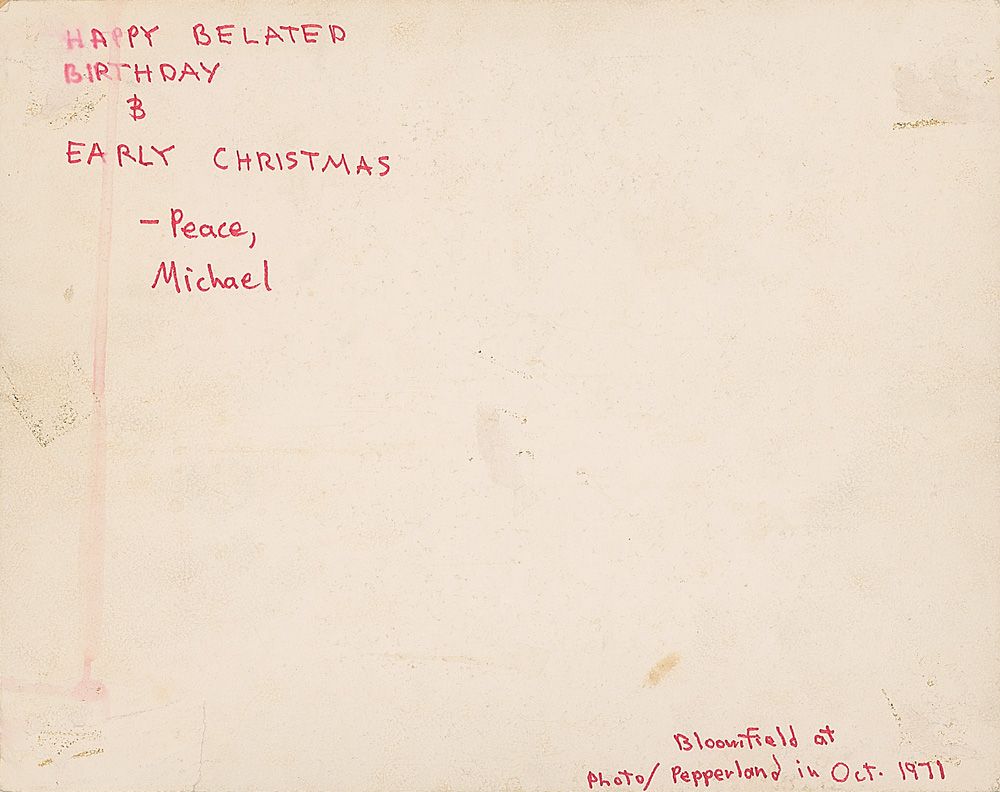 HAPPY BELATED
BIRTHDAY
&
EARLY CHRISTMAS
- Peace,
Michael
Bloomfield at
Photo/ Pepperland in Oct. 1971